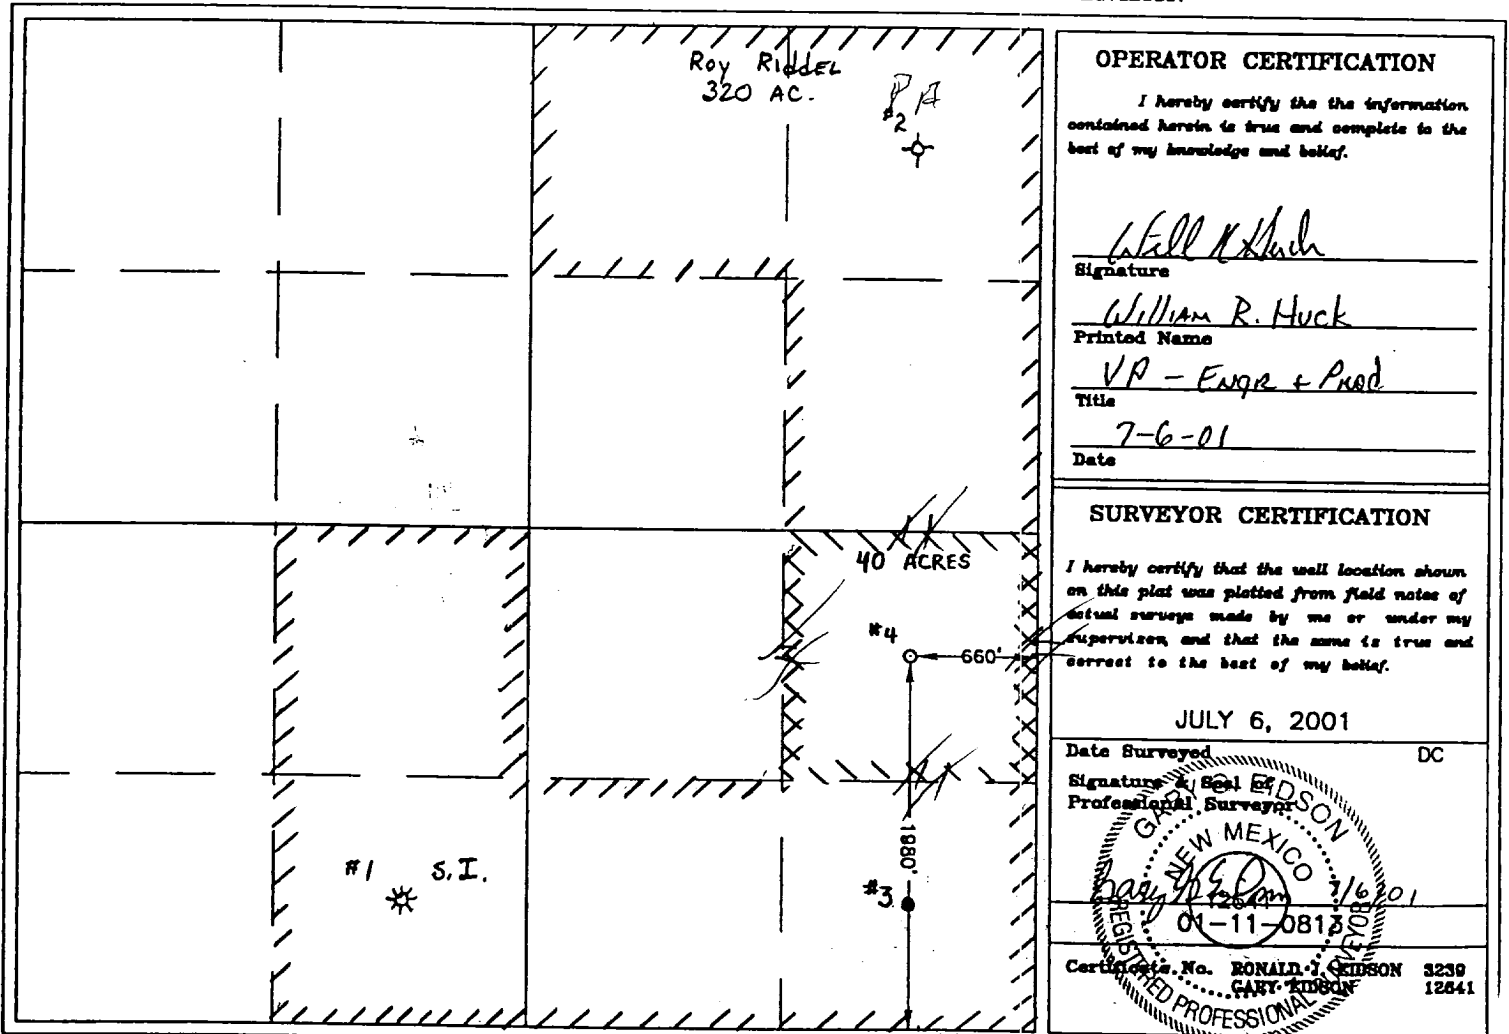 Roy RiddEL
320 AC.
PA
#2
40 ACRES
#4
660'
1980'
#3
#1 S.I.
OPERATOR CERTIFICATION
I hereby certify the the information
contained herein is true and complete to the
best of my knowledge and belief.
Signature
William R. Huck
Printed Name
VP - Engr + Prod
Title
7-6-01
Date
SURVEYOR CERTIFICATION
I hereby certify that the well location shown
on this plat was plotted from field notes of
actual surveys made by me or under my
supervison, and that the same is true and
correct to the best of my belief.
JULY 6, 2001
Date Surveyed DC
Signature & Seal of
Professional Surveyor
GARY G. EIDSON
NEW MEXICO
12641
REGISTERED PROFESSIONAL SURVEYOR
7/6/01
01-11-0813
Certificate No. RONALD J. EIDSON 3239
GARY EIDSON 12641